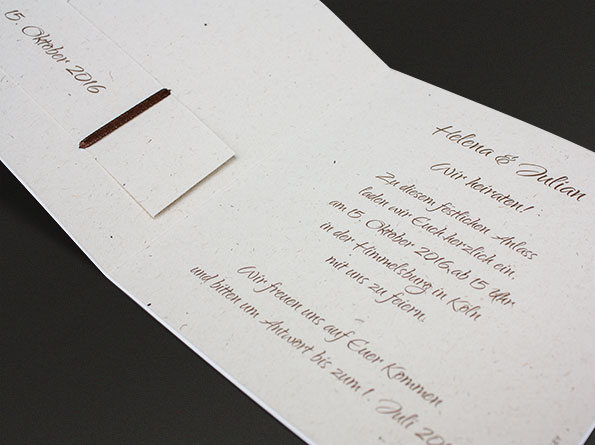 15. Oktober 2016
Helena & Julian
Wir heiraten!
Zu diesem festlichen Anlass
laden wir Euch herzlich ein
am 15. Oktober 2016, ab 15 Uhr
in der Himmelsburg in Köln
mit uns zu feiern.
Wir freuen uns auf Euer Kommen
und bitten um Antwort bis zum 1. Juli